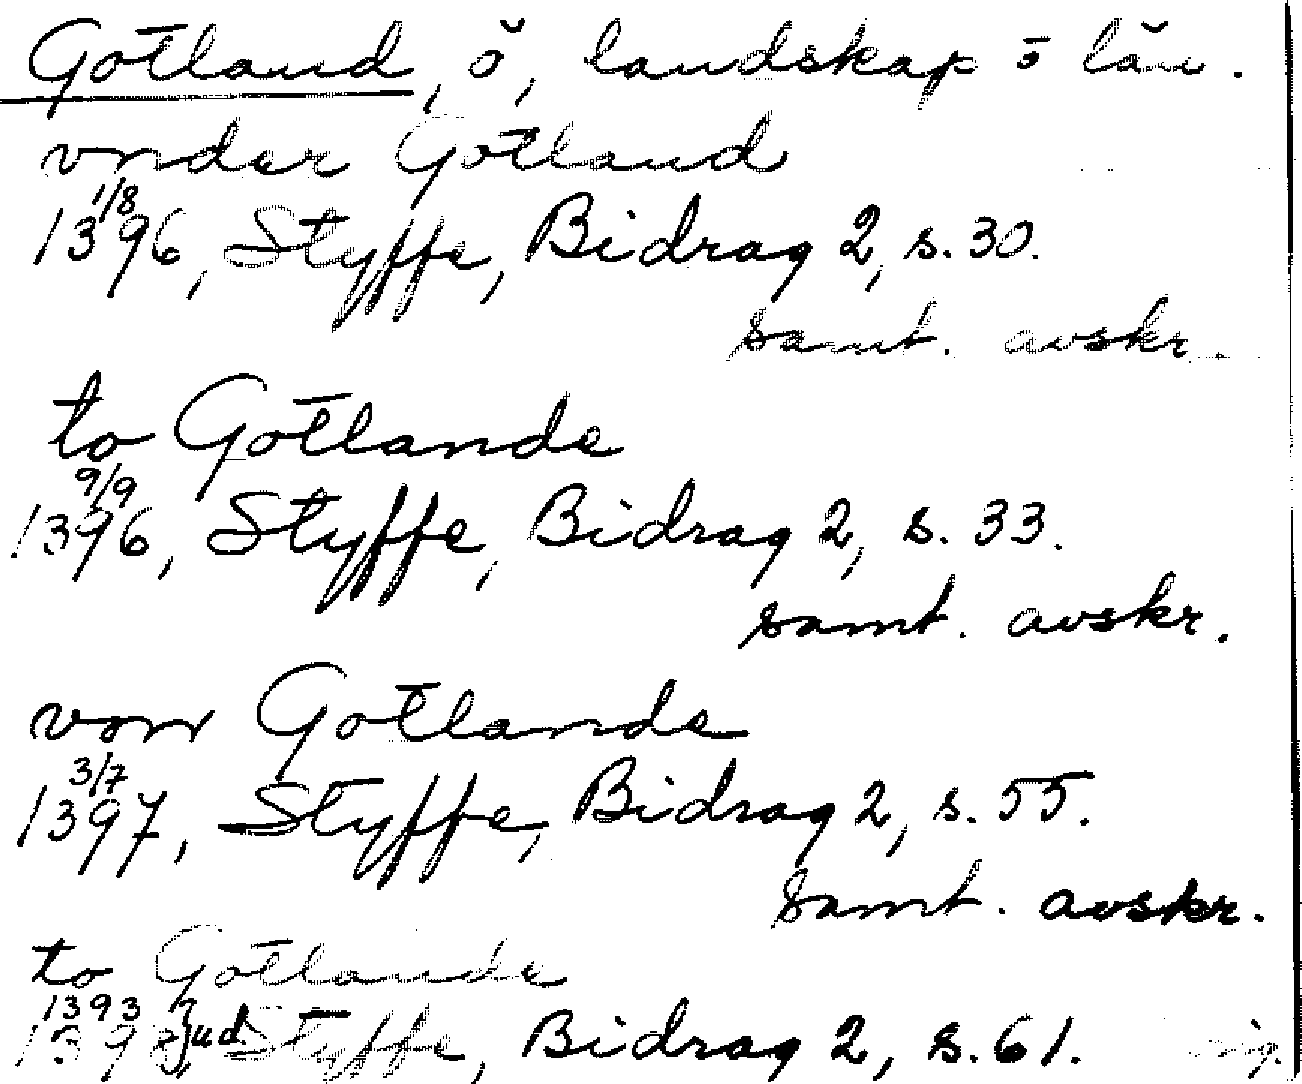 Gotland, ö, landskap o län.
vnder Gotland
1/8
1396, Styffe, Bidrag 2, s. 30.
samt. avskr.
to Gotlande
9/9
1396, Styffe, Bidrag 2, s. 33.
samt. avskr.
von Gotlande
3/7
1397, Styffe, Bidrag 2, s. 55.
samt. avskr.
to Gotlande
1393
Styffe, Bidrag 2, s. 61. orig.